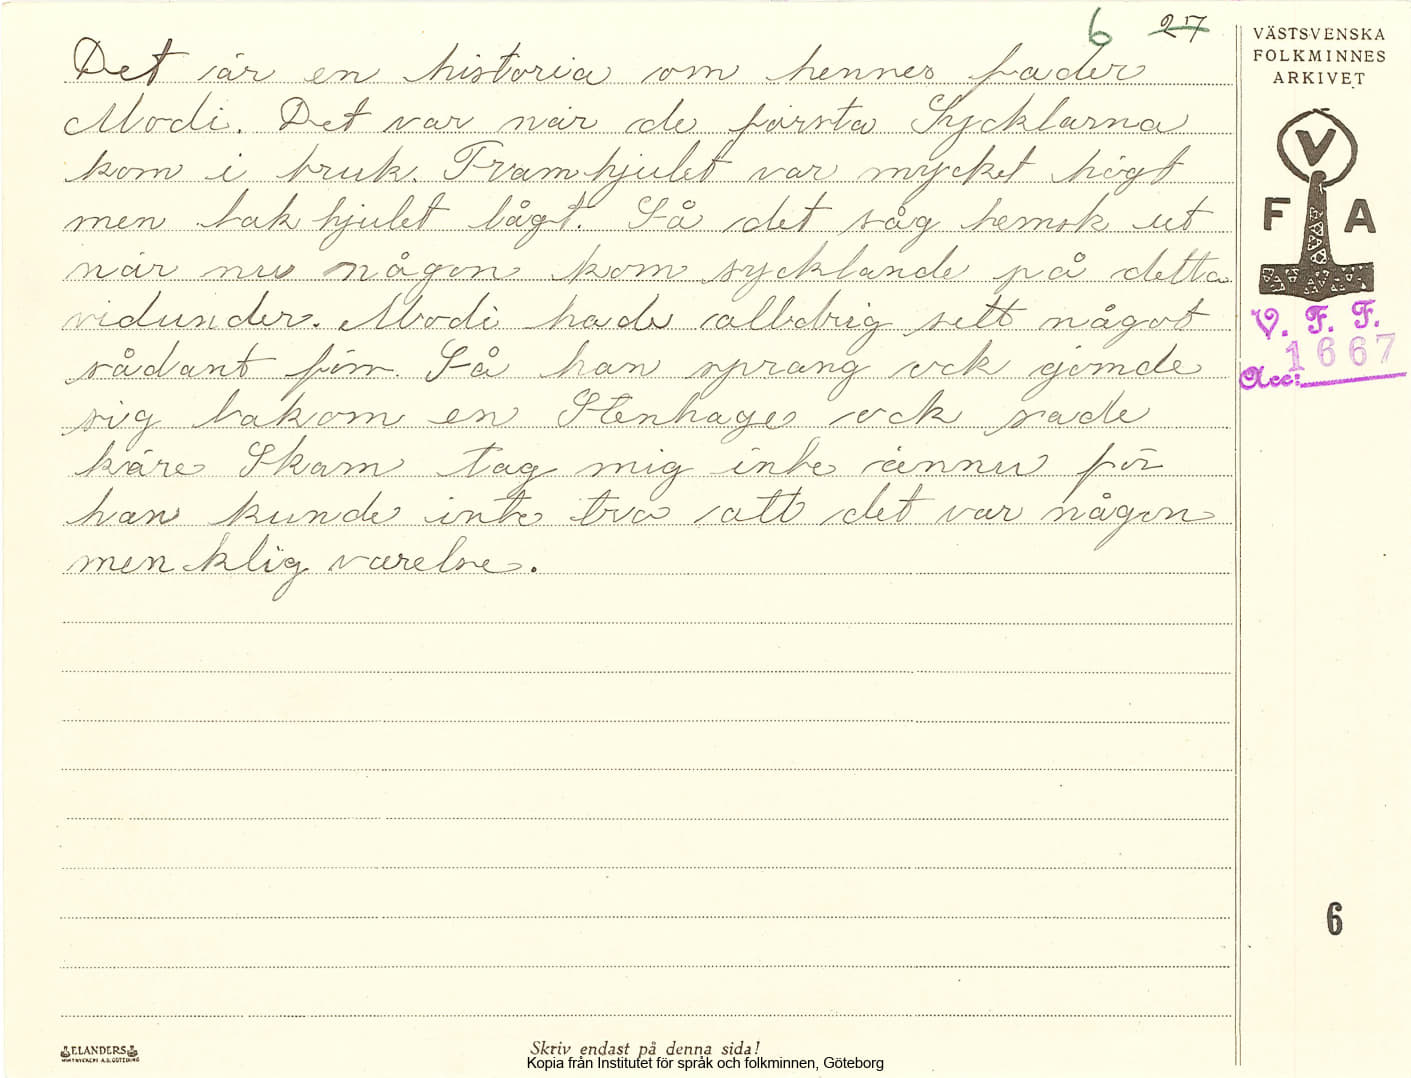 6 27
Det är en historia om hennes fader
Modi. Det var när de första Sycklarna
kom i bruk. Framhjulet var mycket högt
men bak hjulet lågt. Så det såg hemsk ut
när nu någon kom sycklande på detta
vidunder. Modi hade alldrig sett något
sådant förr. Så han sprang ock gjömde
sig bakom en Stenhage ock sade
käre Skam tag mig inte ännu för
han kunde inte tro att det var någon
men klig varelse.
VÄSTSVENSKA
FOLKMINNES
ARKIVET
V
F A
V. F. F.
Acc: 1667
6
ELANDERS
Skriv endast på denna sida!
Kopia från Institutet för språk och folkminnen, Göteborg